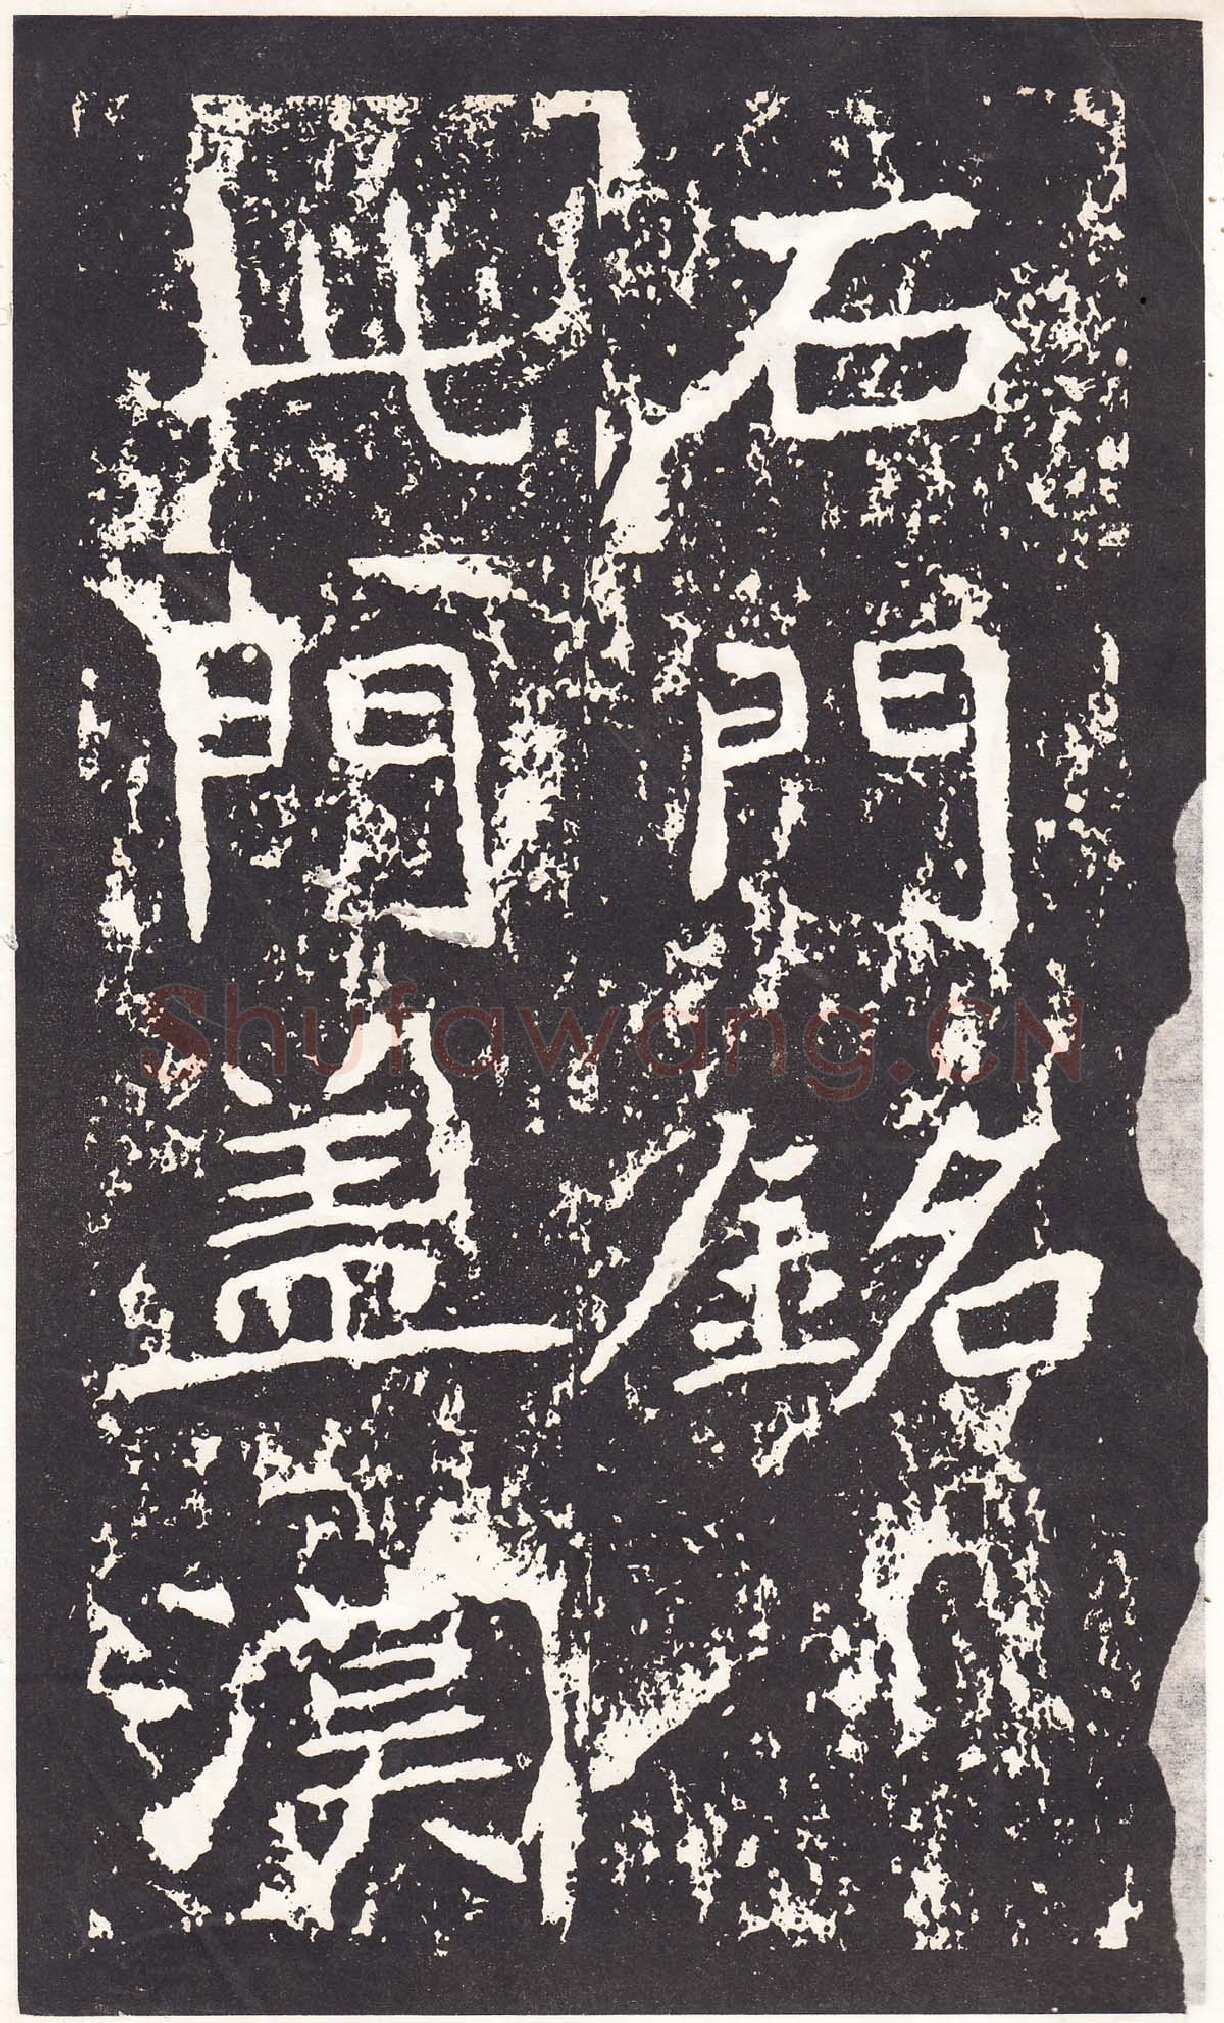 石門銘
此門蓋漢
Shufawang.CN